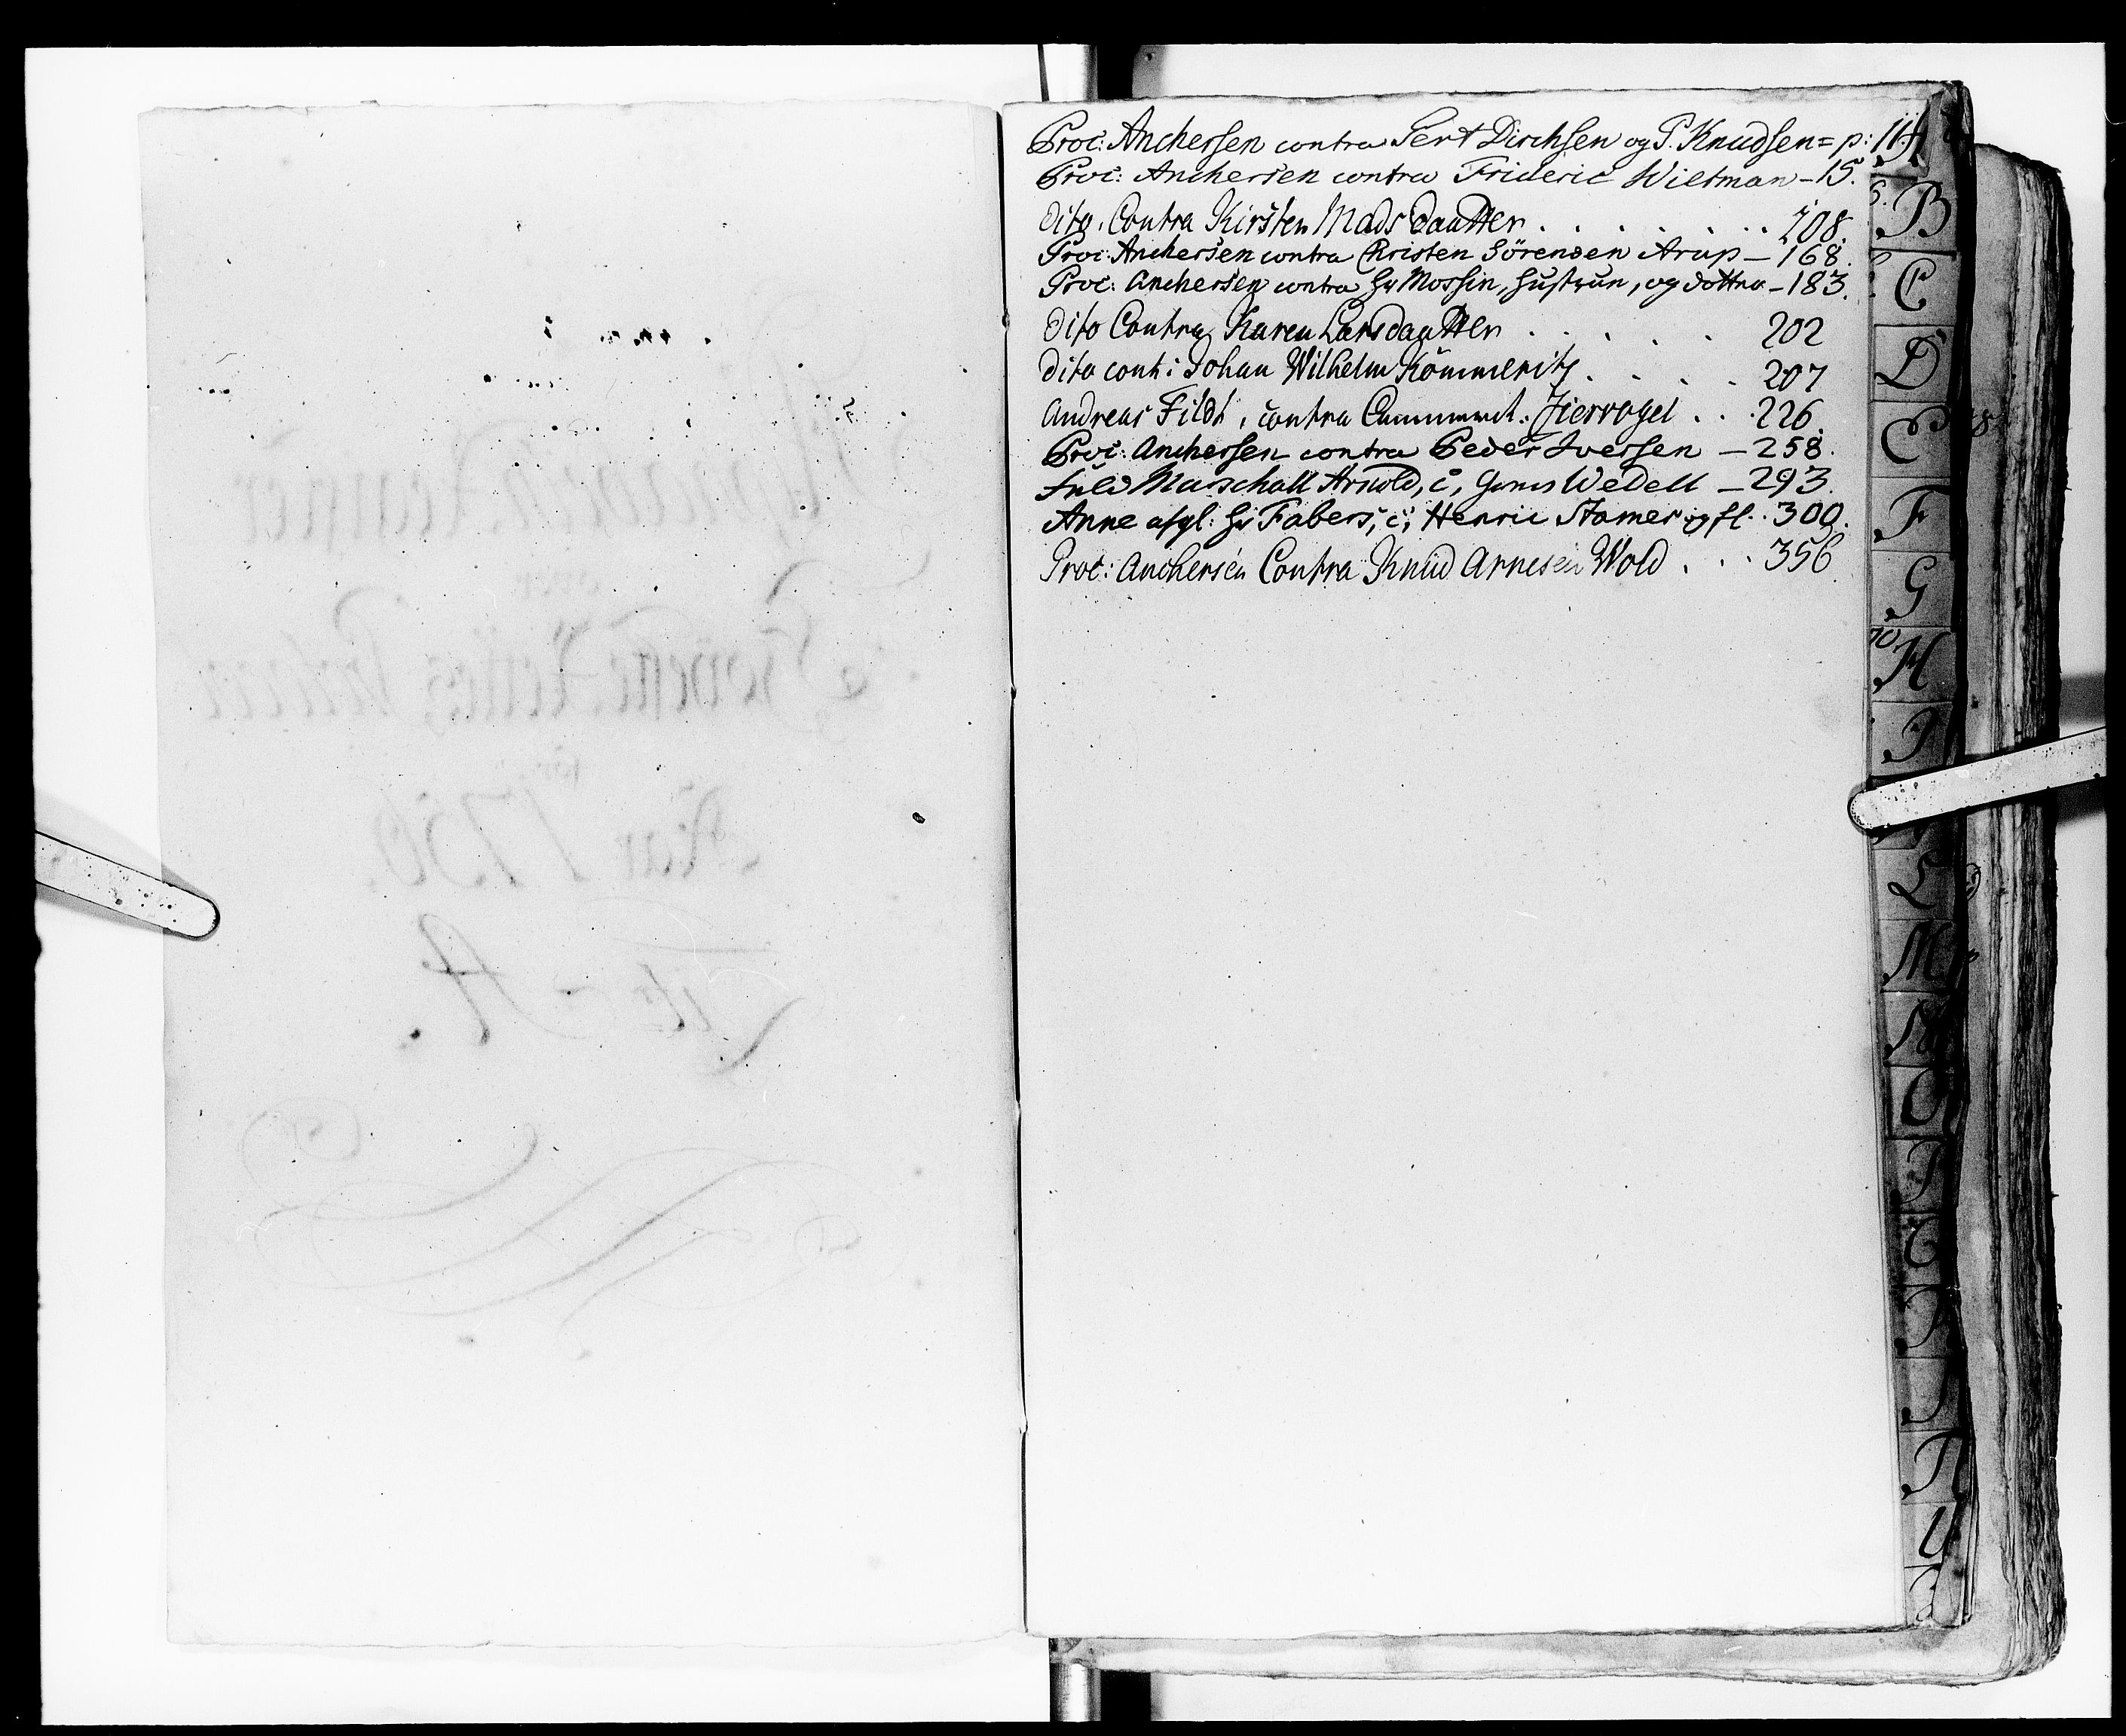 Proc: Anchersen contra Gert Dirchsen og P. Knudsen = p: 11.
Proc: Anchersen contra Frideric Wiltman - 15.
dito, Contra Kirsten Mads daatter . . . . . . . 108.
Proc: Anchersen contra Christen Sörensen Arup - 168.
Proc: Anchersen contra Hr Mossin, Hustrue, og dottre - 183.
dito Contra Karen Larsdaatter . . . . 202
dito cont: Johan Wilhelm Kömmeritz . . . . 207
Andreas Fildt, contra Jiervogel . . . 226.
Proc: Anchersen contra Peder Iversen - 258.
Marschall Arnold, c, Wedell - 293.
Anne afgl: Hr Fabers, c, Henric Stamer og fl. . 300.
Proc: Anchersen Contra Knud Arnesen Wold . . . 356
A
B
C
D
E
F
G
H
I
L
M
N
O
P
U